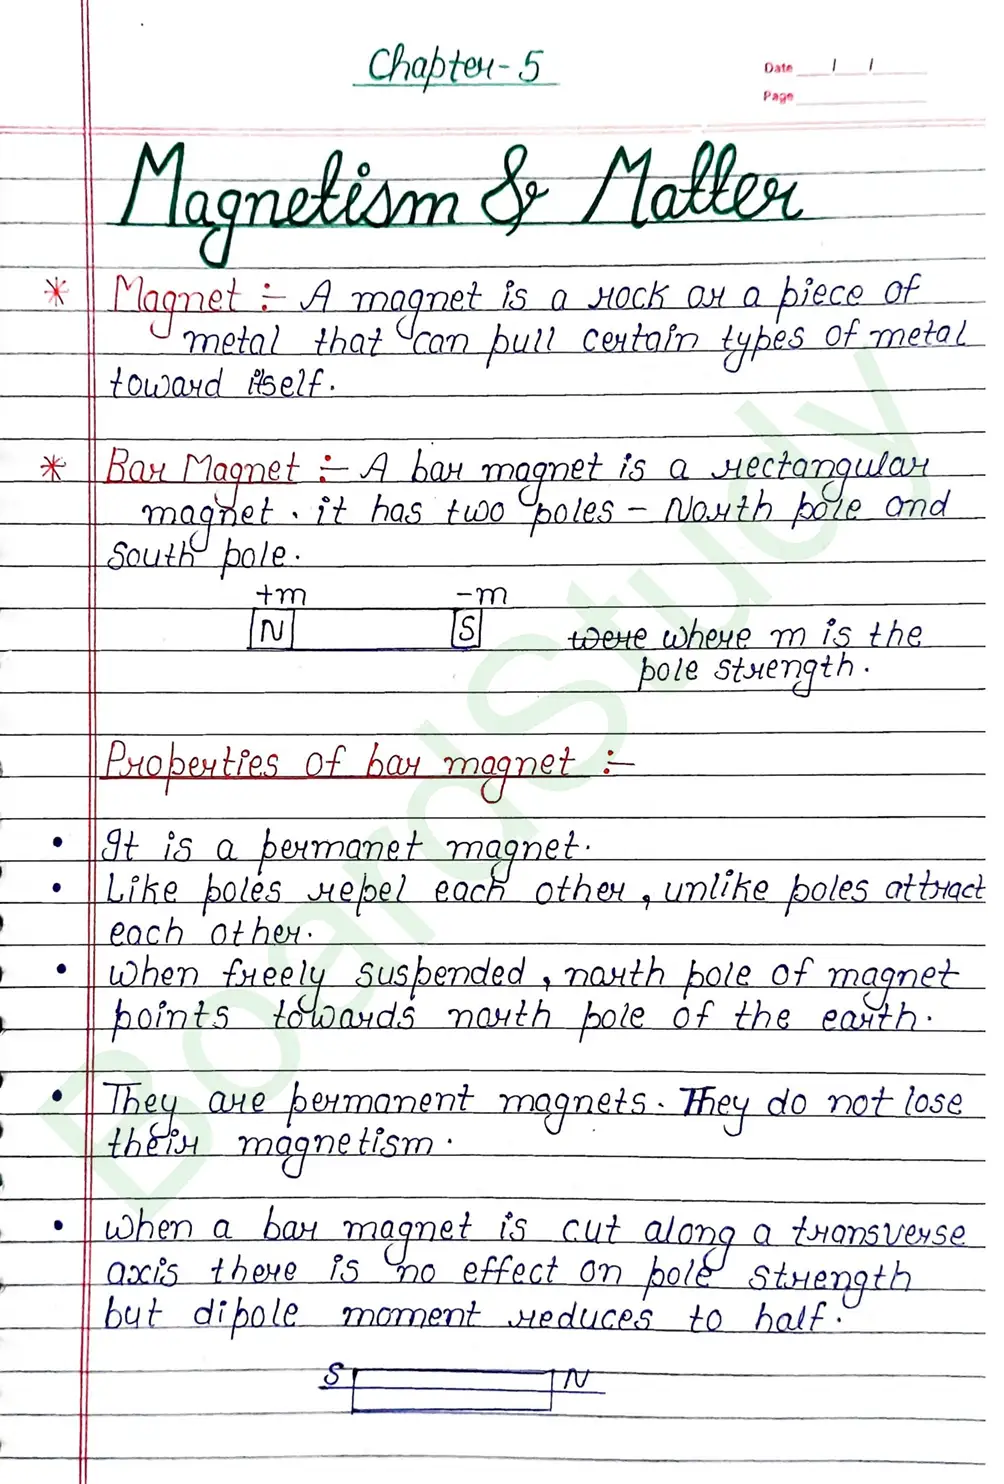 Chapter-5
Date / /
Page
Magnetism & Matter
* Magnet :- A magnet is a rock or a piece of
metal that can pull certain types of metal
toward itself.
* Bar Magnet :- A bar magnet is a rectangular
magnet. it has two poles - North pole and
South pole.
+m -m
N S were where m is the
pole strength.
Properties of bar magnet :-
• It is a permanet magnet.
• Like poles repel each other, unlike poles attract
each other.
• when freely suspended, north pole of magnet
points towards north pole of the earth.
• They are permanent magnets. They do not lose
their magnetism.
• when a bar magnet is cut along a transverse
axis there is no effect on pole strength
but dipole moment reduces to half.
S N
BoardStudy